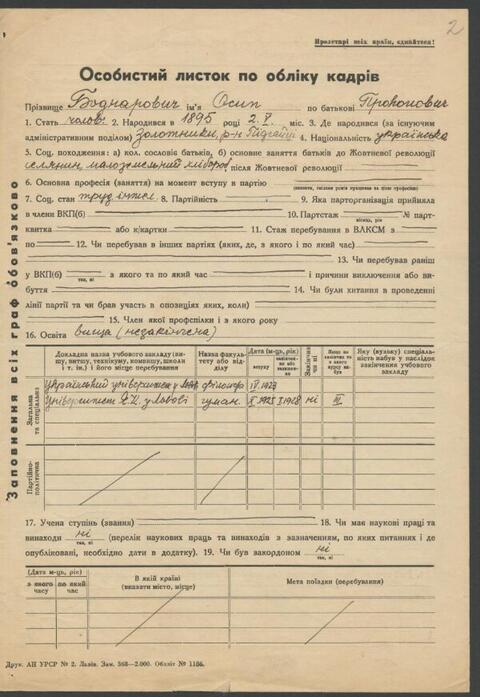 2
Пролетарі всіх країн, єднайтеся!
Особистий листок по обліку кадрів
Прізвище Боднарович ім'я Осип по батькові Прокопович
1. Стать чолов. 2. Народився в 1895 році 2.V. міс. 3. Де народився (за існуючим
адміністративним поділом) Золотники, р-н Підгайці 4. Національність українська
5. Соц. походження: а) кол. сословіє батьків, б) основне заняття батьків до Жовтневої революції
селянин, малоземельний хлібороб, після Жовтневої революції
6. Основна професія (заняття) на момент вступу в партію
7. Соц. стан труд. інтел. 8. Партійність 9. Яка парторганізація прийняла
в члени ВКП(б) 10. Партстаж № парт-
місяць, рік
квитка або к/картки 11. Стаж перебування в ВЛКСМ з
по 12. Чи перебував в інших партіях (яких, де, з якого і по який час)
13. Чи перебував раніш
у ВКП(б) з якого та по який час і причини виключення або ви-
так, ні
буття 14. Чи були хитання в проведенні
лінії партії та чи брав участь в опозиціях яких, коли)
15. Член якої профспілки і з якого року
16. Освіта вища (незакінчена)
Заповнення всіх граф обов'язково
Докладна назва учбового закладу (ви-
шу, втишу, технікуму, комвишу, школи
і т. ін.) і його місце перебування
Назва факуль-
тету або від-
ділу
Дата (м-ць, рік)
вступу
Закінчив
чи ні
Яку (вузьку) спеціаль-
ність набув у наслідок
закінчення учбового
закладу
Загальна
та спеціальна
Український університет у Львові філософ. IV 1923
Університет Я.К. у Львові гуман. X 1925 X 1928 ні III
Партійно-
політична
17. Учена ступінь (звання) 18. Чи має наукові праці та
винаходи ні (перелік наукових праць та винаходів з зазначенням, по яких питаннях і де
так, ні
опубліковані, необхідно дати в додатку). 19. Чи був закордоном ні
так, ні
(Дата м-ць, рік)
з якого
часу
по який
час
В якій країні
(вказати місто, місце)
Мета поїздки (перебування)
Друк. АН УРСР № 2. Львів. Зам. 568—2.000. Обліт № 1156.